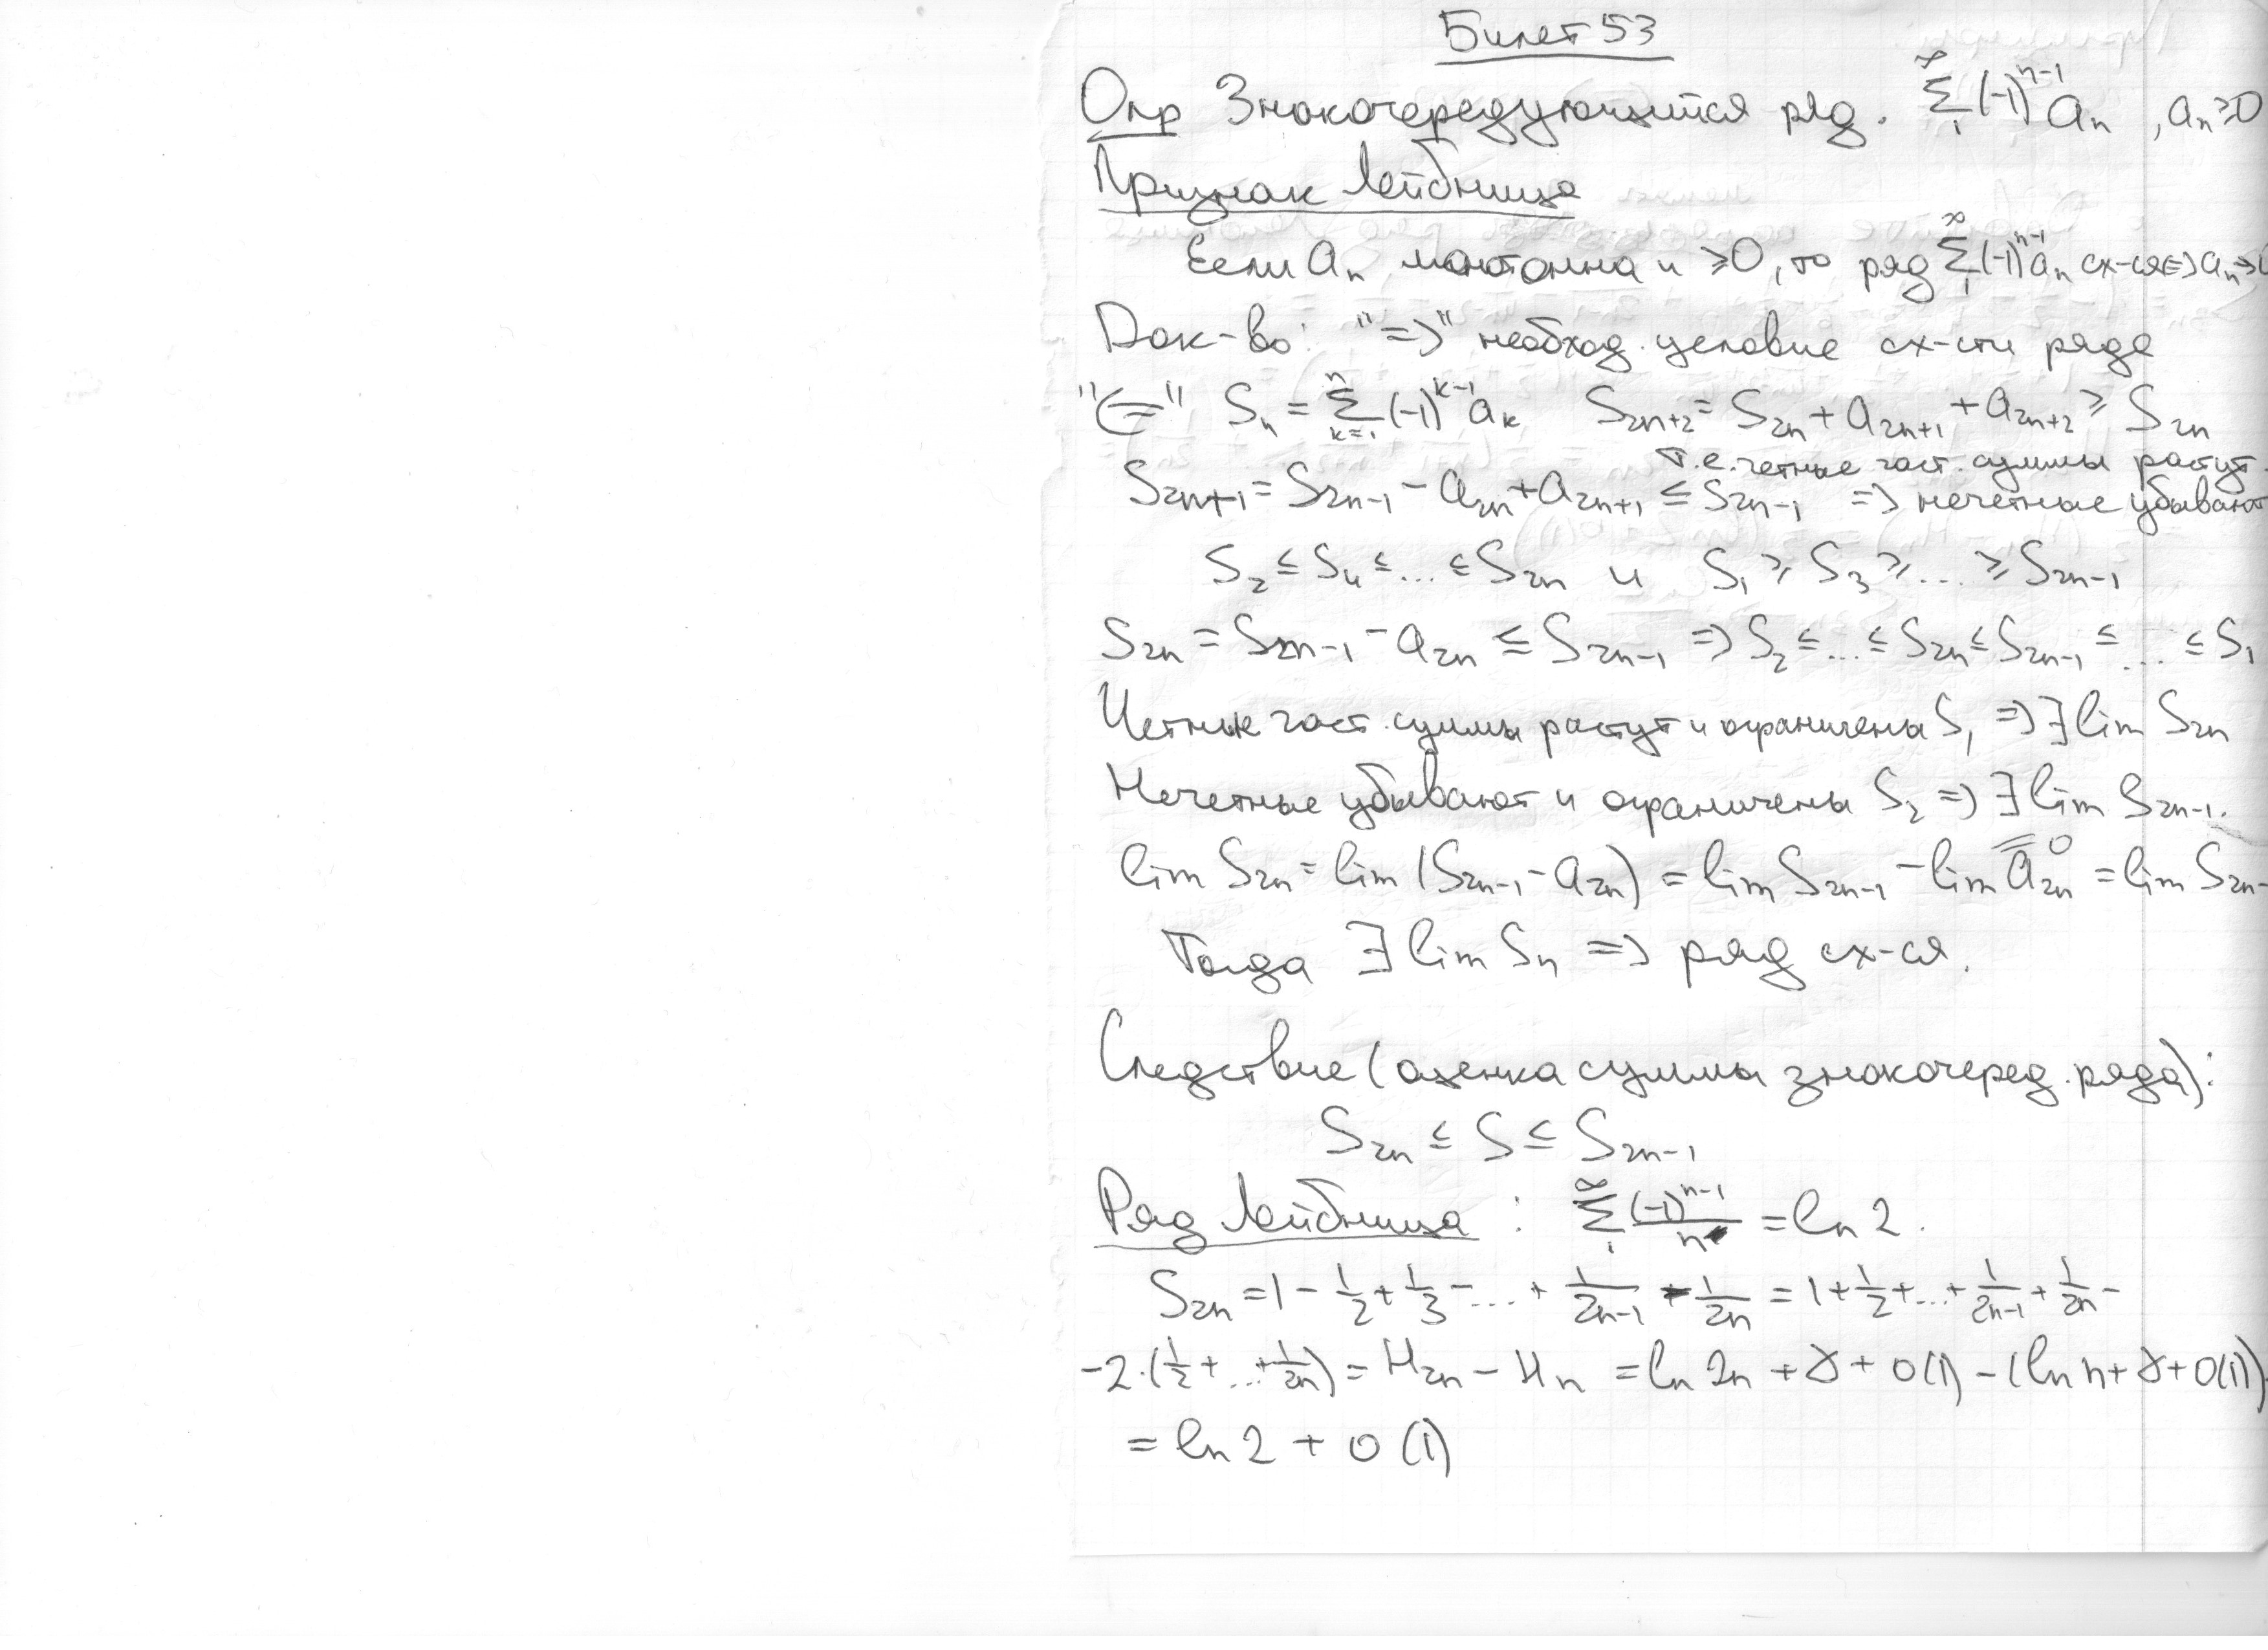 Билет 53
Опр Знакочередующийся ряд. ∑₁^∞ (-1)^{n-1} aₙ , aₙ ≥ 0
Признак Лейбница
Если aₙ монотонна и ≥0, то ряд ∑₁^∞ (-1)^{n-1} aₙ сх-ся <=> aₙ →
Док-во: "=>" необход. условие сх-сти ряда
"<=" Sₙ = ∑_{k=1}^n (-1)^{k-1} a_k S_{2n+2} = S_{2n} + a_{2n+1} + a_{2n+2} ≥ S_{2n}
т.е. четные част. суммы растут.
S_{2n+1} = S_{2n-1} - a_{2n} + a_{2n+1} ≤ S_{2n-1} => нечетные убывают
S₂ ≤ S₄ ≤ ... ≤ S_{2n} и S₁ ≥ S₃ ≥ ... ≥ S_{2n-1}
S_{2n} = S_{2n-1} - a_{2n} ≤ S_{2n-1} => S₂ ≤ ... ≤ S_{2n} ≤ S_{2n-1} ≤ ... ≤ S₁
Четные част. суммы растут и ограничены S₁ => ∃ lim S_{2n}
Нечетные убывают и ограничены S₂ => ∃ lim S_{2n-1}.
lim S_{2n} = lim (S_{2n-1} - a_{2n}) = lim S_{2n-1} - lim a_{2n} = lim S_{2n-
= 0
Тогда ∃ lim Sₙ => ряд сх-ся.
Следствие (оценка суммы знакочеред. ряда):
S_{2n} ≤ S ≤ S_{2n-1}
Ряд Лейбница : ∑₁^∞ (-1)^{n-1}/n = ln 2.
S_{2n} = 1 - 1/2 + 1/3 - ... + 1/(2n-1) - 1/(2n) = 1 + 1/2 + ... + 1/(2n-1) + 1/(2n) -
-2·(1/2 + ... + 1/(2n)) = H_{2n} - Hₙ = ln 2n + γ + o(1) - (ln n + γ + o(1))
= ln 2 + o(1)